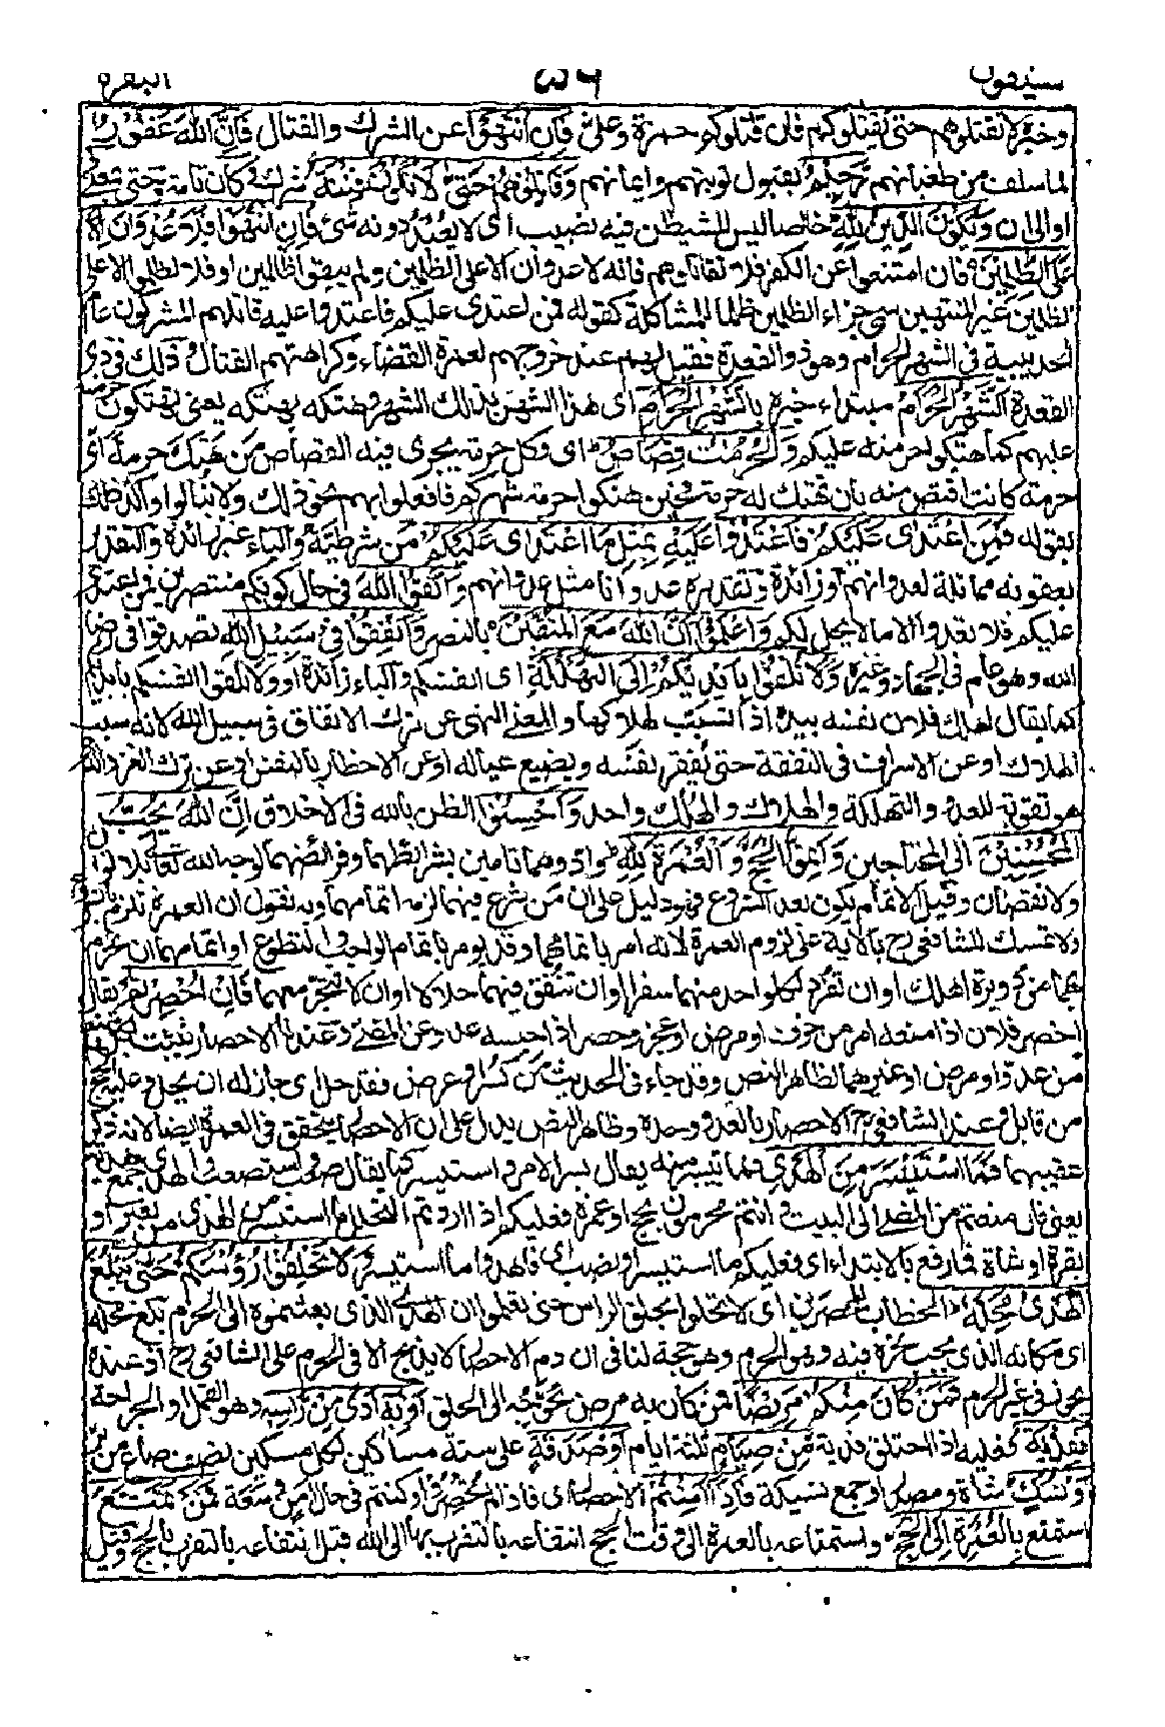 سيقول ٥٦ البقرة
وحمزة لا تقتلوهم حتى يقتلوكم فان قتلوكم حمزة وعلى فَاِنِ انْتَهَوْا عن الشرك والقتال فَاِنَّ اللّٰهَ غَفُوْرٌ
لما سلف من طغيانهم رَّحِيْمٌ بقبول توبتهم وايمانهم وَقَاتِلُوْهُمْ حَتّٰى لَا تَكُوْنَ فِتْنَةٌ شرك وكان تامة وحتى بمعنى كى
او الى ان وَيَكُوْنَ الدِّيْنُ لِلّٰهِ خالصا ليس للشيطن فيه نصيب اى لا يعبد دونه شئ فَاِنِ انْتَهَوْا فَلَا عُدْوَانَ اِلَّا
عَلَى الظّٰلِمِيْنَ فان امتنعوا عن الكفر فلا تقاتلوهم فانه لا عدوان الا على الظلمين ولم يبقوا ظالمين او فلا تظلموا الا على
الظلمين غير المنتهين سمى جزاء الظلمين ظلما للمشاكلة كقوله فمن اعتدى عليكم فاعتدوا عليه قاتلهم المشركون عام
الحديبية فى الشهر الحرام وهو ذو القعدة فقيل لهم عند خروجهم لعمرة القضاء وكراهتهم القتال وذلك فى ذى
القعدة اَلشَّهْرُ الْحَرَامُ مبتداء خبره بِالشَّهْرِ الْحَرَامِ اى هذا الشهر بذلك الشهر وهتكه بهتكه يعنى تهتكون حرمته
عليهم كما هتكوا حرمته عليكم وَالْحُرُمٰتُ قِصَاصٌ اى وكل حرمة يجرى فيه القصاص من هتك حرمة اى
حرمة كانت اقتص منه بان تهتك له حرمة فحين هتكوا حرمة شهركم فافعلوا بهم نحو ذلك ولا تبالوا واكد ذلك
بقوله فَمَنِ اعْتَدٰى عَلَيْكُمْ فَاعْتَدُوْا عَلَيْهِ بِمِثْلِ مَا اعْتَدٰى عَلَيْكُمْ من شرطية والباء غير زائدة والتقدير
بعقوبة مماثلة لعدوانهم او زائدة وتقديره عدوانا مثل عدوانهم وَاتَّقُوا اللّٰهَ فى حال كونكم منتصرين ممن اعتدى
عليكم فلا تعتدوا الا ما لا يحل لكم وَاعْلَمُوْا اَنَّ اللّٰهَ مَعَ الْمُتَّقِيْنَ بالنصر وَاَنْفِقُوْا فِيْ سَبِيْلِ اللّٰهِ تصدقوا فى رضاء
الله وهو عام فى الجهاد وغيره وَلَا تُلْقُوْا بِاَيْدِيْكُمْ اِلَى التَّهْلُكَةِ اى انفسكم والباء زائدة او ولا تلقوا انفسكم بايديكم
كما يقال اهلك فلان نفسه بيده اذا تسبب لهلاكها والمعنى النهى عن ترك الانفاق فى سبيل الله لانه سبب
الهلاك او عن الاسراف فى النفقة حتى يفقر نفسه ويضيع عياله او عن الاخطار بالنفس او عن ترك الغزو الذى
هو تقوية للعدو والتهلكة والهلاك والهلك واحد وَاَحْسِنُوْا الظن بالله فى الاخلاق اِنَّ اللّٰهَ يُحِبُّ
الْمُحْسِنِيْنَ الى المحتاجين وَاَتِمُّوا الْحَجَّ وَالْعُمْرَةَ لِلّٰهِ وادوهما تامين بشرائطهما وفرائضهما لوجه الله تعالى بلا توان
ولا نقصان وقيل الاتمام يكون بعد الشروع فهو دليل على ان من شرع فيهما لزمه اتمامهما وبه نقول ان العمرة تلزم بالشروع
ولا تمسك للشافعى رح بالاية على لزوم العمرة لانه امر باتمامها وقد يؤمر باتمام الواجب والتطوع او اتمامهما ان تحرم
بهما من دويرة اهلك او ان تفرد لكل واحد منهما سفرا او ان تنفق فيهما حلالا او ان لا تتجر معهما فَاِنْ اُحْصِرْتُمْ يقال
احصر فلان اذا منعه امر من خوف او مرض او عجز وحصر اذا حبسه عدو عن المضى وعندنا الاحصار يثبت بكل منع
من عدو او مرض او غيرهما لظاهر النص وقد جاء فى الحديث من كسر او عرض فقد حل اى جاز له ان يحل وعليه الحج
من قابل وعند الشافعى رح الاحصار بالعدو وحده وظاهر النص يدل على ان الاحصار يتحقق فى العمرة ايضا لانه ذكر
عقيبهما فَمَا اسْتَيْسَرَ مِنَ الْهَدْيِ فما تيسر منه يقال يسر الامر واستيسر كما يقال صعب واستصعب والهدى جمع هدية
يعنى فان منعتم من المضى الى البيت وانتم محرمون بحج او عمرة فعليكم اذا اردتم التحلل ما استيسر من الهدى من بعير او
بقرة او شاة فما رفع بالابتداء اى فعليكم ما استيسر او نصب اى فاهدوا ما استيسر وَلَا تَحْلِقُوْا رُءُوْسَكُمْ حَتّٰى يَبْلُغَ
الْهَدْيُ مَحِلَّهُ الخطاب للمحصرين اى لا تحلوا بحلق الراس حتى تعلموا ان الهدى الذى بعثتموه الى الحرم بلغ محله
اى مكانه الذى يجب نحره فيه وهو الحرم وهو حجة لنا فى ان دم الاحصار لا يذبح الا فى الحرم على الشافعى رح اذ عنده
يجوز فى غير الحرم فَمَنْ كَانَ مِنْكُمْ مَرِيْضًا فمن كان به مرض يحوجه الى الحلق اَوْ بِهٖ اَذًى مِّنْ رَّاْسِهٖ وهو القمل او الجراحة
فَفِدْيَةٌ فعليه اذا احتلق فدية مِّنْ صِيَامٍ ثلثة ايام اَوْ صَدَقَةٍ على ستة مساكين لكل مسكين نصف صاع من بر
اَوْ نُسُكٍ شاة ومصدر او جمع نسيكة فَاِذَا اَمِنْتُمْ الاحصار اى فاذا لم تحصروا وكنتم فى حال امن وسعة فَمَنْ تَمَتَّعَ
استمتع بِالْعُمْرَةِ اِلَى الْحَجِّ واستمتاعه بالعمرة الى وقت الحج انتفاعه بالتقرب بها الى الله قبل انتفاعه بالتقرب بالحج وقيل